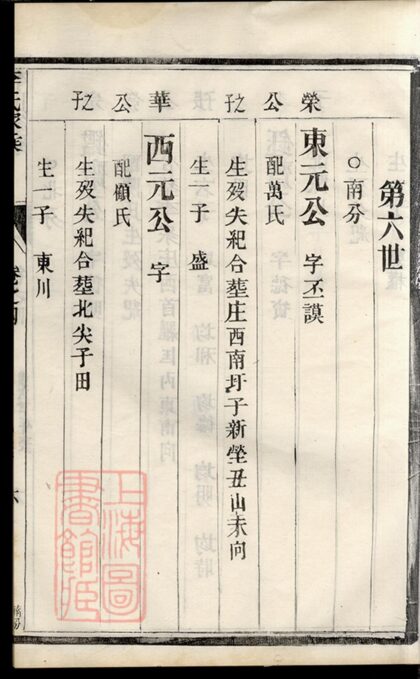 第六世
○南分
榮公孜
東元公 字丕謨
配萬氏
生歿失紀合塟庄西南圩子新塋丑山未向
生一子 盛
華公孜
西元公 字
配顧氏
生歿失紀合塟北尖子田
生一子 東川
上海圖書館藏